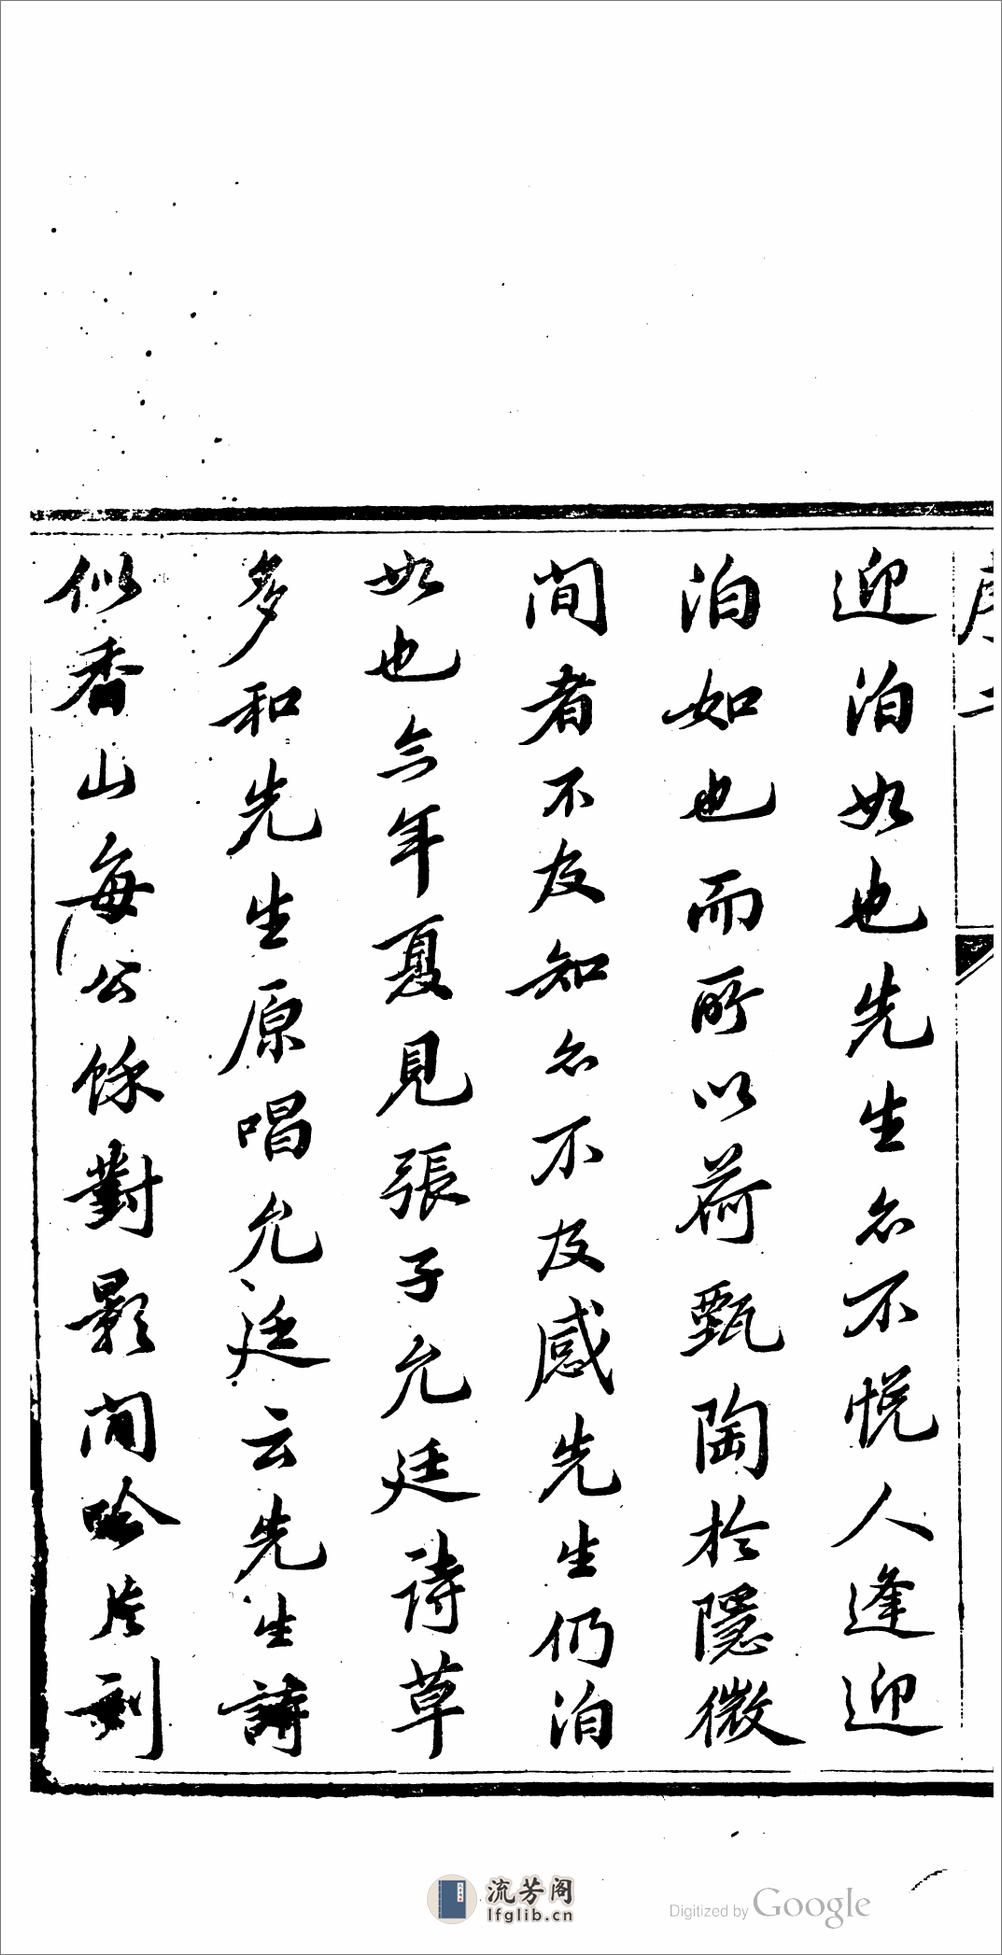 序 二
迎泊如也先生亦不悅人逢迎
泊如也而所以荷甄陶於隱微
間者不及知亦不及感先生仍泊
如也今年夏見張子允廷詩草
多和先生原唱允廷云先生詩
似香山每公餘對影閒吟片刻
流芳阁
lfglib.cn
Digitized by Google